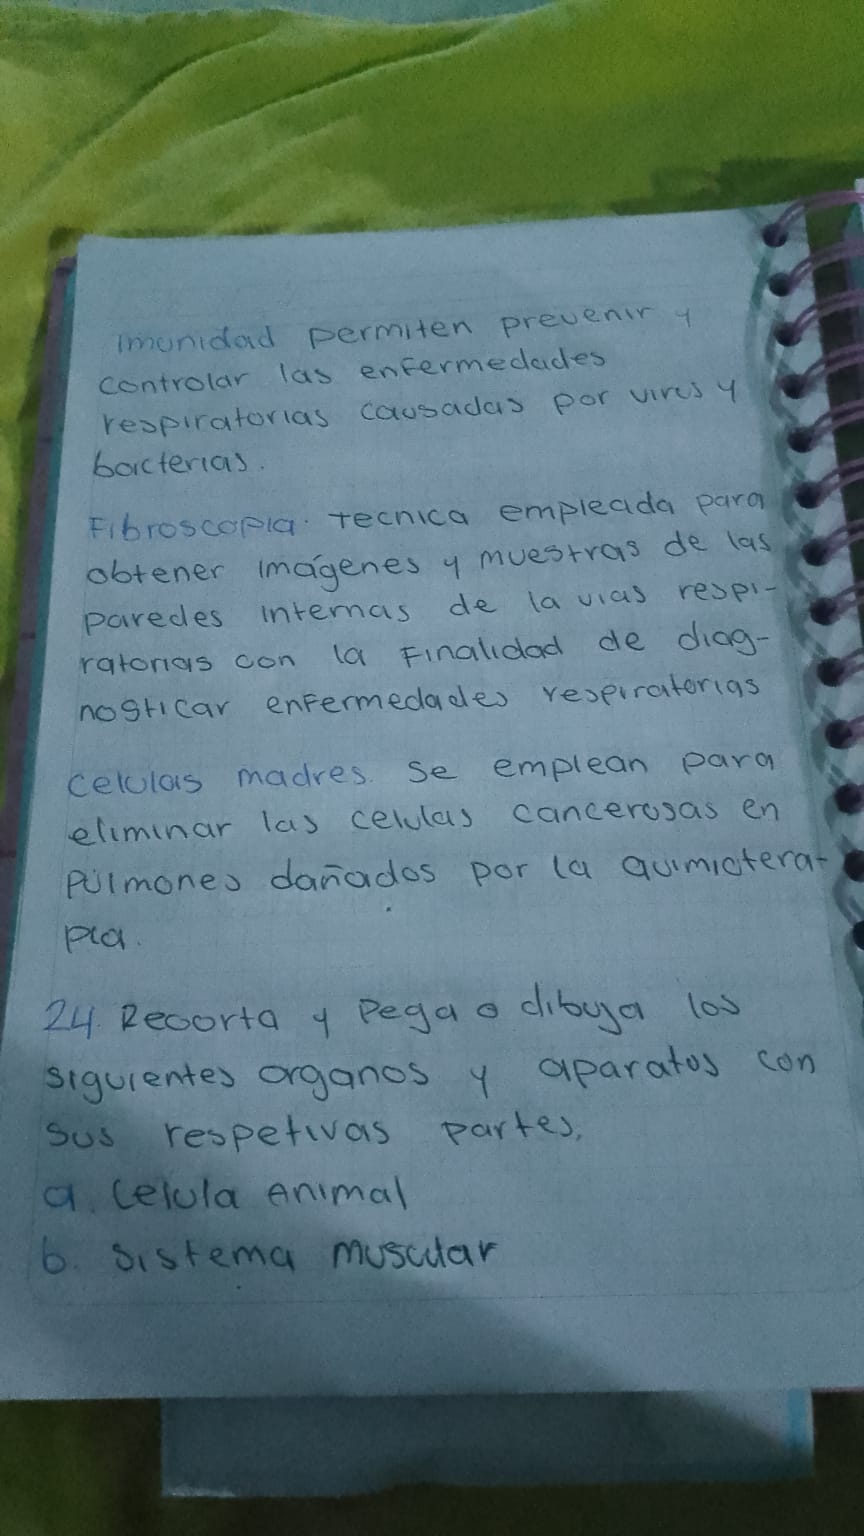 imunidad permiten prevenir y
controlar las enfermedades
respiratorias causadas por virus y
bacterias.
Fibroscopia. tecnica empleada para
obtener imágenes y muestras de las
paredes internas de la vias respi-
ratorias con la finalidad de diag-
nosticar enfermedades respiratorias
celulas madres. se emplean para
eliminar las celulas cancerosas en
pulmones dañados por la quimiotera-
pia.
24. Recorta y pega o dibuja los
siguientes organos y aparatos con
sus respetivas partes,
a. Celula Animal
b. sistema muscular